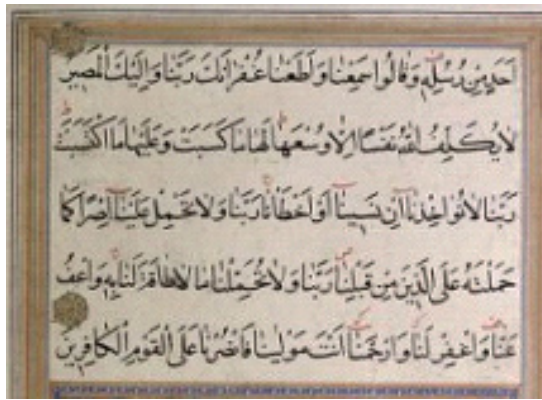 اَحَدٍ مِنْ رُسُلِهِ وَقَالُوا سَمِعْنَا وَاَطَعْنَا غُفْرَانَكَ رَبَّنَا وَاِلَيْكَ الْمَصِيرُ
لَا يُكَلِّفُ اللّٰهُ نَفْسًا اِلَّا وُسْعَهَا لَهَا مَا كَسَبَتْ وَعَلَيْهَا مَا اكْتَسَبَتْ
رَبَّنَا لَا تُؤَاخِذْنَا اِنْ نَسِينَا اَوْ اَخْطَأْنَا رَبَّنَا وَلَا تَحْمِلْ عَلَيْنَا اِصْرًا كَمَا
حَمَلْتَهُ عَلَى الَّذِينَ مِنْ قَبْلِنَا رَبَّنَا وَلَا تُحَمِّلْنَا مَا لَا طَاقَةَ لَنَا بِهِ وَاعْفُ
عَنَّا وَاغْفِرْ لَنَا وَارْحَمْنَا اَنْتَ مَوْلٰينَا فَانْصُرْنَا عَلَى الْقَوْمِ الْكَافِرِينَ